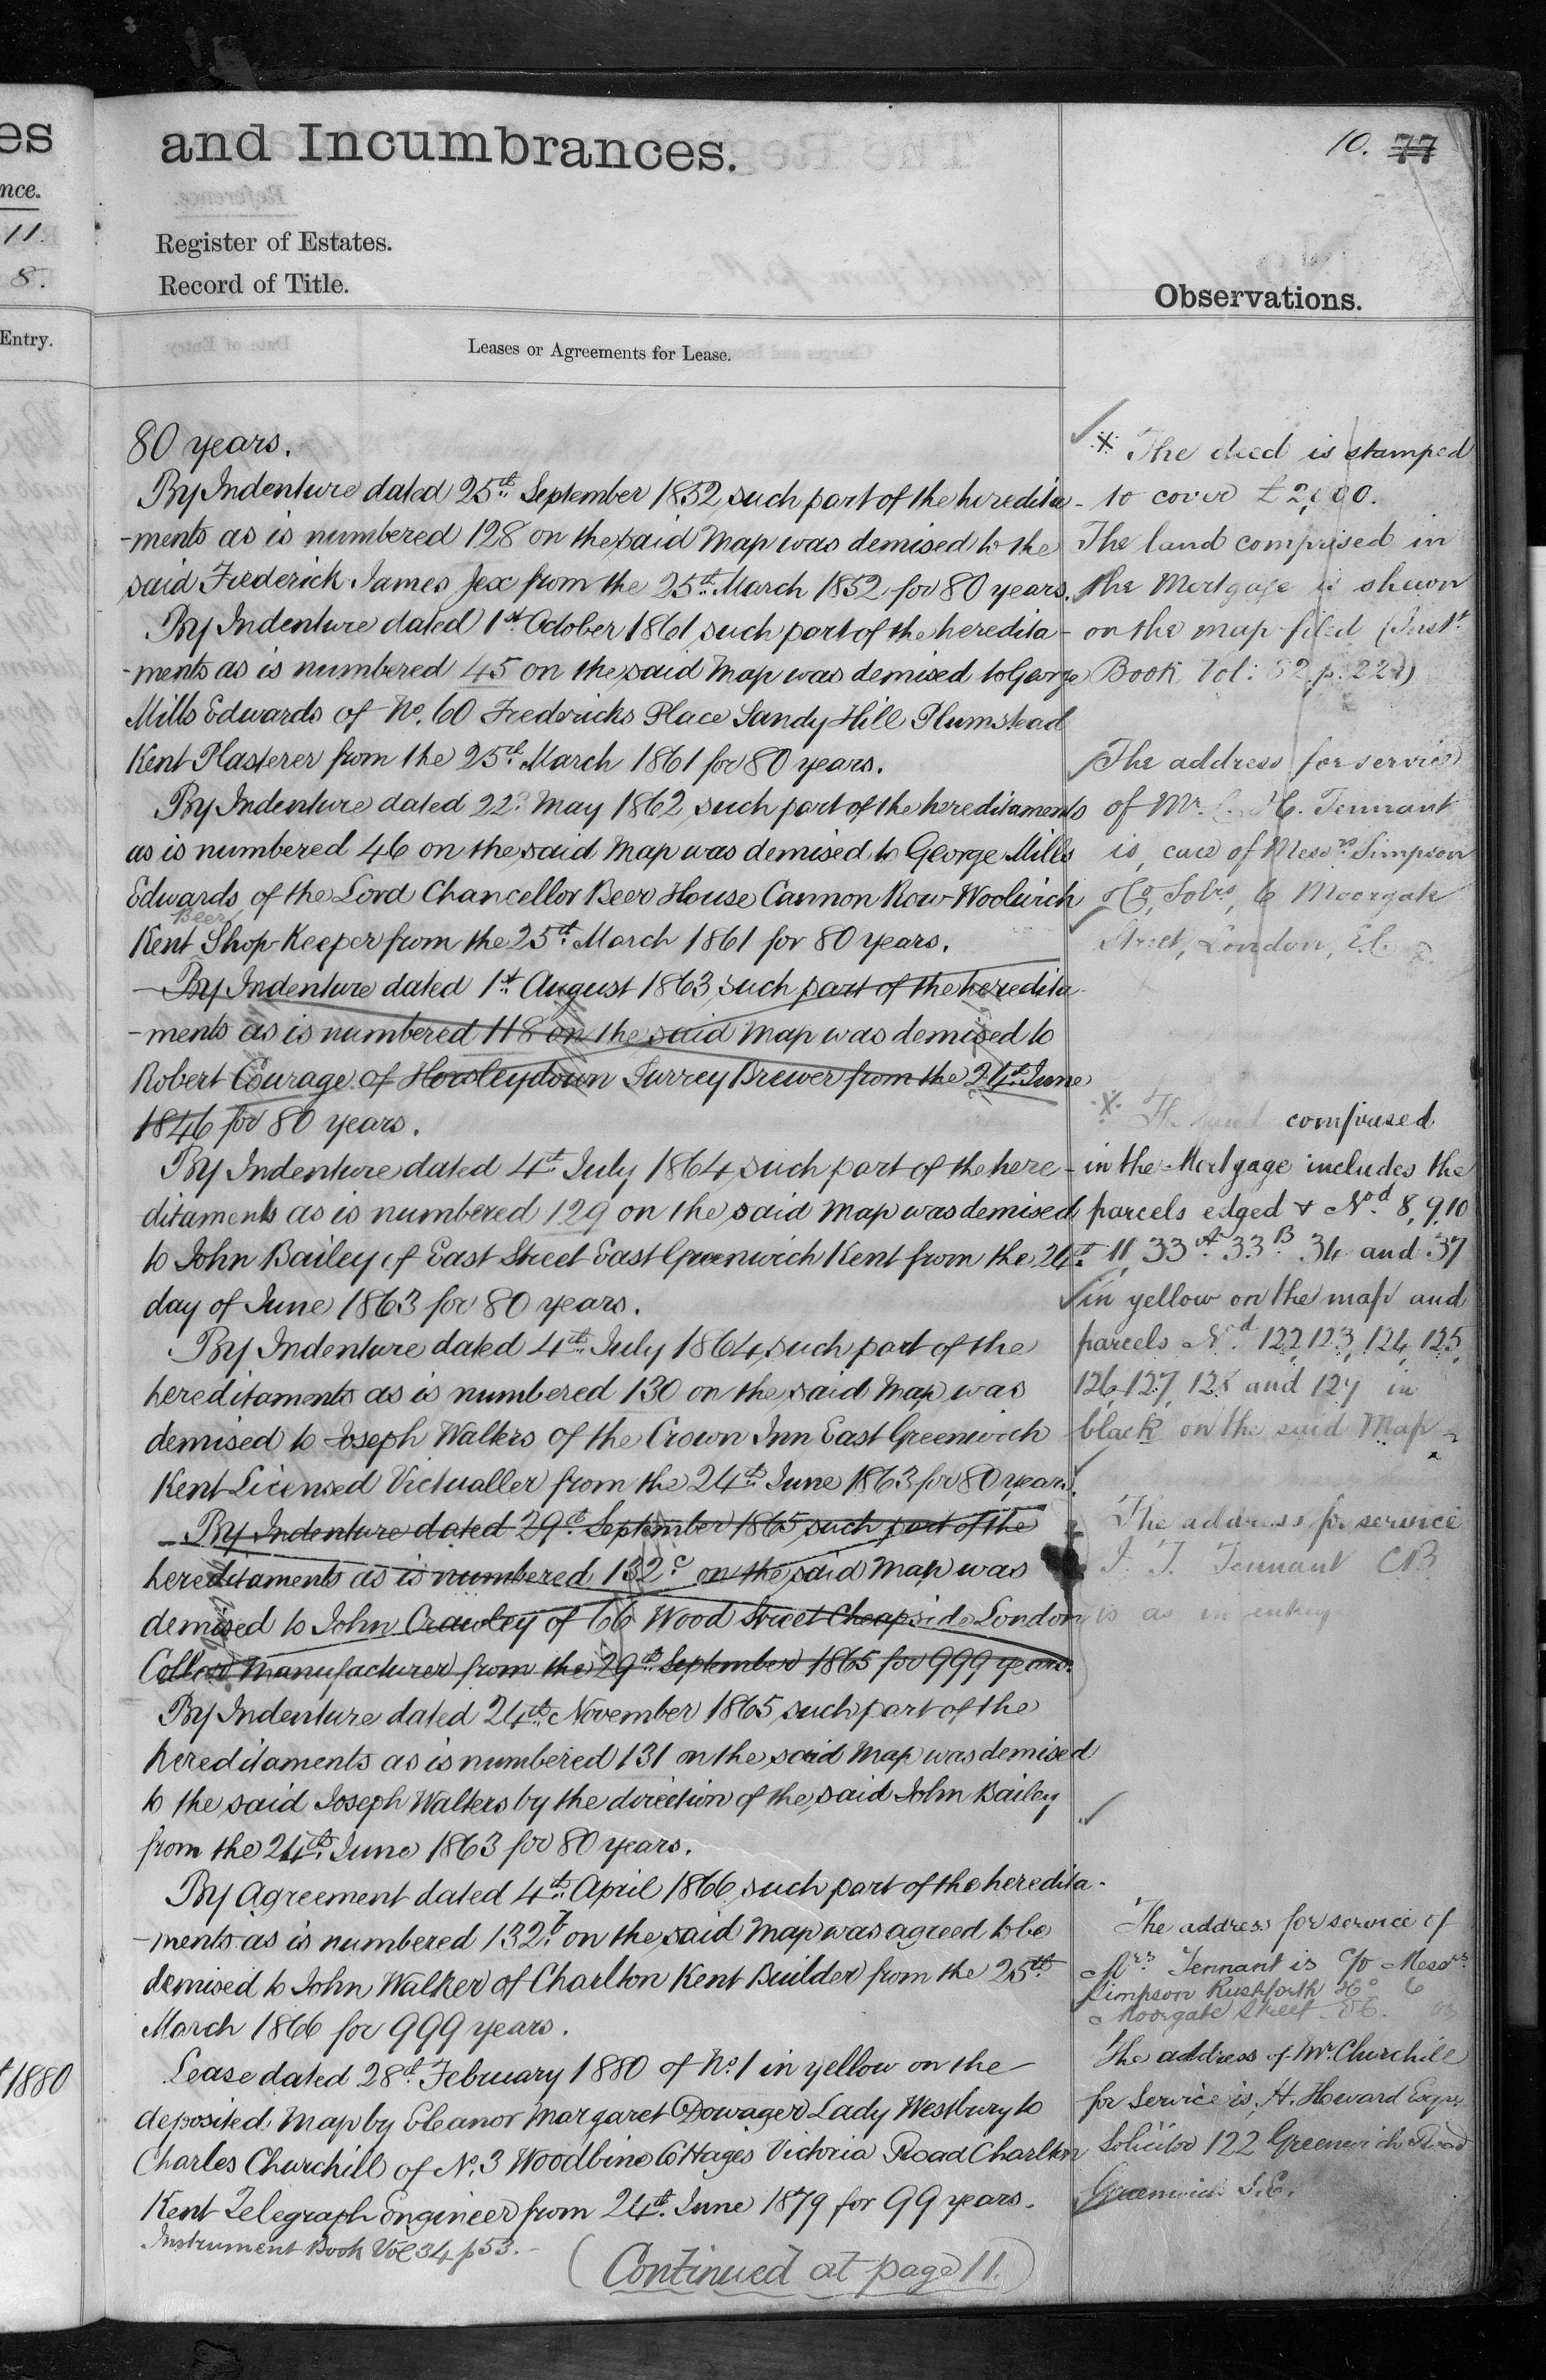 es
nce.
11.
8.
Entry.
t 1880
and Incumbrances.
10. 77
Register of Estates.
Record of Title.
Observations.
Leases or Agreements for Lease.
80 years.
By Indenture dated 25th September 1852 such part of the heredita-
-ments as is numbered 128 on the said Map was demised to the
said Frederick James Jex from the 25th March 1852 for 80 years.
By Indenture dated 1st October 1861 such part of the heredita-
-ments as is numbered 45 on the said Map was demised to George
Mills Edwards of No. 60 Fredericks Place Sandy Hill Plumstead
Kent Plasterer from the 25th March 1861 for 80 years.
By Indenture dated 22d May 1862 such part of the hereditaments
as is numbered 46 on the said Map was demised to George Mills
Edwards of the Lord Chancellor Beer House Cannon Row Woolwich
Beer
Kent Shop Keeper from the 25th March 1861 for 80 years.
By Indenture dated 1st August 1863 such part of the heredita-
-ments as is numbered 118 on the said Map was demised to
Robert Courage of Horsleydown Surrey Brewer from the 24th June
1846 for 80 years.
By Indenture dated 4th July 1864 such part of the here-
ditaments as is numbered 129 on the said Map was demised
to John Bailey of East Street East Greenwich Kent from the 24th
day of June 1863 for 80 years.
By Indenture dated 4th July 1864 such part of the
hereditaments as is numbered 130 on the said Map was
demised to Joseph Walters of the Crown Inn East Greenwich
Kent Licensed Victualler from the 24th June 1863 for 80 years.
By Indenture dated 29th September 1865 such part of the
hereditaments as is numbered 132c on the said Map was
demised to John Crawley of 66 Wood Street Cheapside London
Collar Manufacturer from the 29th September 1865 for 999 years.
By Indenture dated 24th November 1865 such part of the
hereditaments as is numbered 131 on the said Map was demised
to the said Joseph Walters by the direction of the said John Bailey
from the 24th June 1863 for 80 years.
By Agreement dated 4th April 1866 such part of the heredita-
-ments as is numbered 132 on the said Map was agreed to be
demised to John Walker of Charlton Kent Builder from the 25th
March 1866 for 999 years.
Lease dated 28th February 1880 of No. 1 in yellow on the
deposited Map by Eleanor Margaret Dowager Lady Westbury to
Charles Churchill of No. 3 Woodbine Cottages Victoria Road Charlton
Kent Telegraph Engineer from 24th June 1879 for 99 years.
Instrument Book Vol 34 p 53.
(Continued at page 11.)
The deed is stamped
to cover £2,000.
The land comprised in
the Mortgage is shewn
on the map filed (Inst.
Book Vol: p.
The address for service
of Mr. H. Tennant
is, care of Messrs Simpson
& Co, Solrs, 6 Moorgate
Street, London, E.C.
The land comprised
in the Mortgage includes the
parcels edged & Nod 8, 9, 10
11, 33A 33B 34 and 37
in yellow on the map and
parcels Nod 122, 123, 124, 125,
126, 127, 128 and 129 in
black on the said Map
The address for service
J. T. Tennant CB
is as in entry
The address for service of
Mrs Tennant is c/o Messrs
Simpson Rushforth & Co 6
Moorgate Street E.C.
The address of Mr. Churchill
for Service is, H. Howard Esqre
Solicitor 122 Greenwich Road
Greenwich S.E.